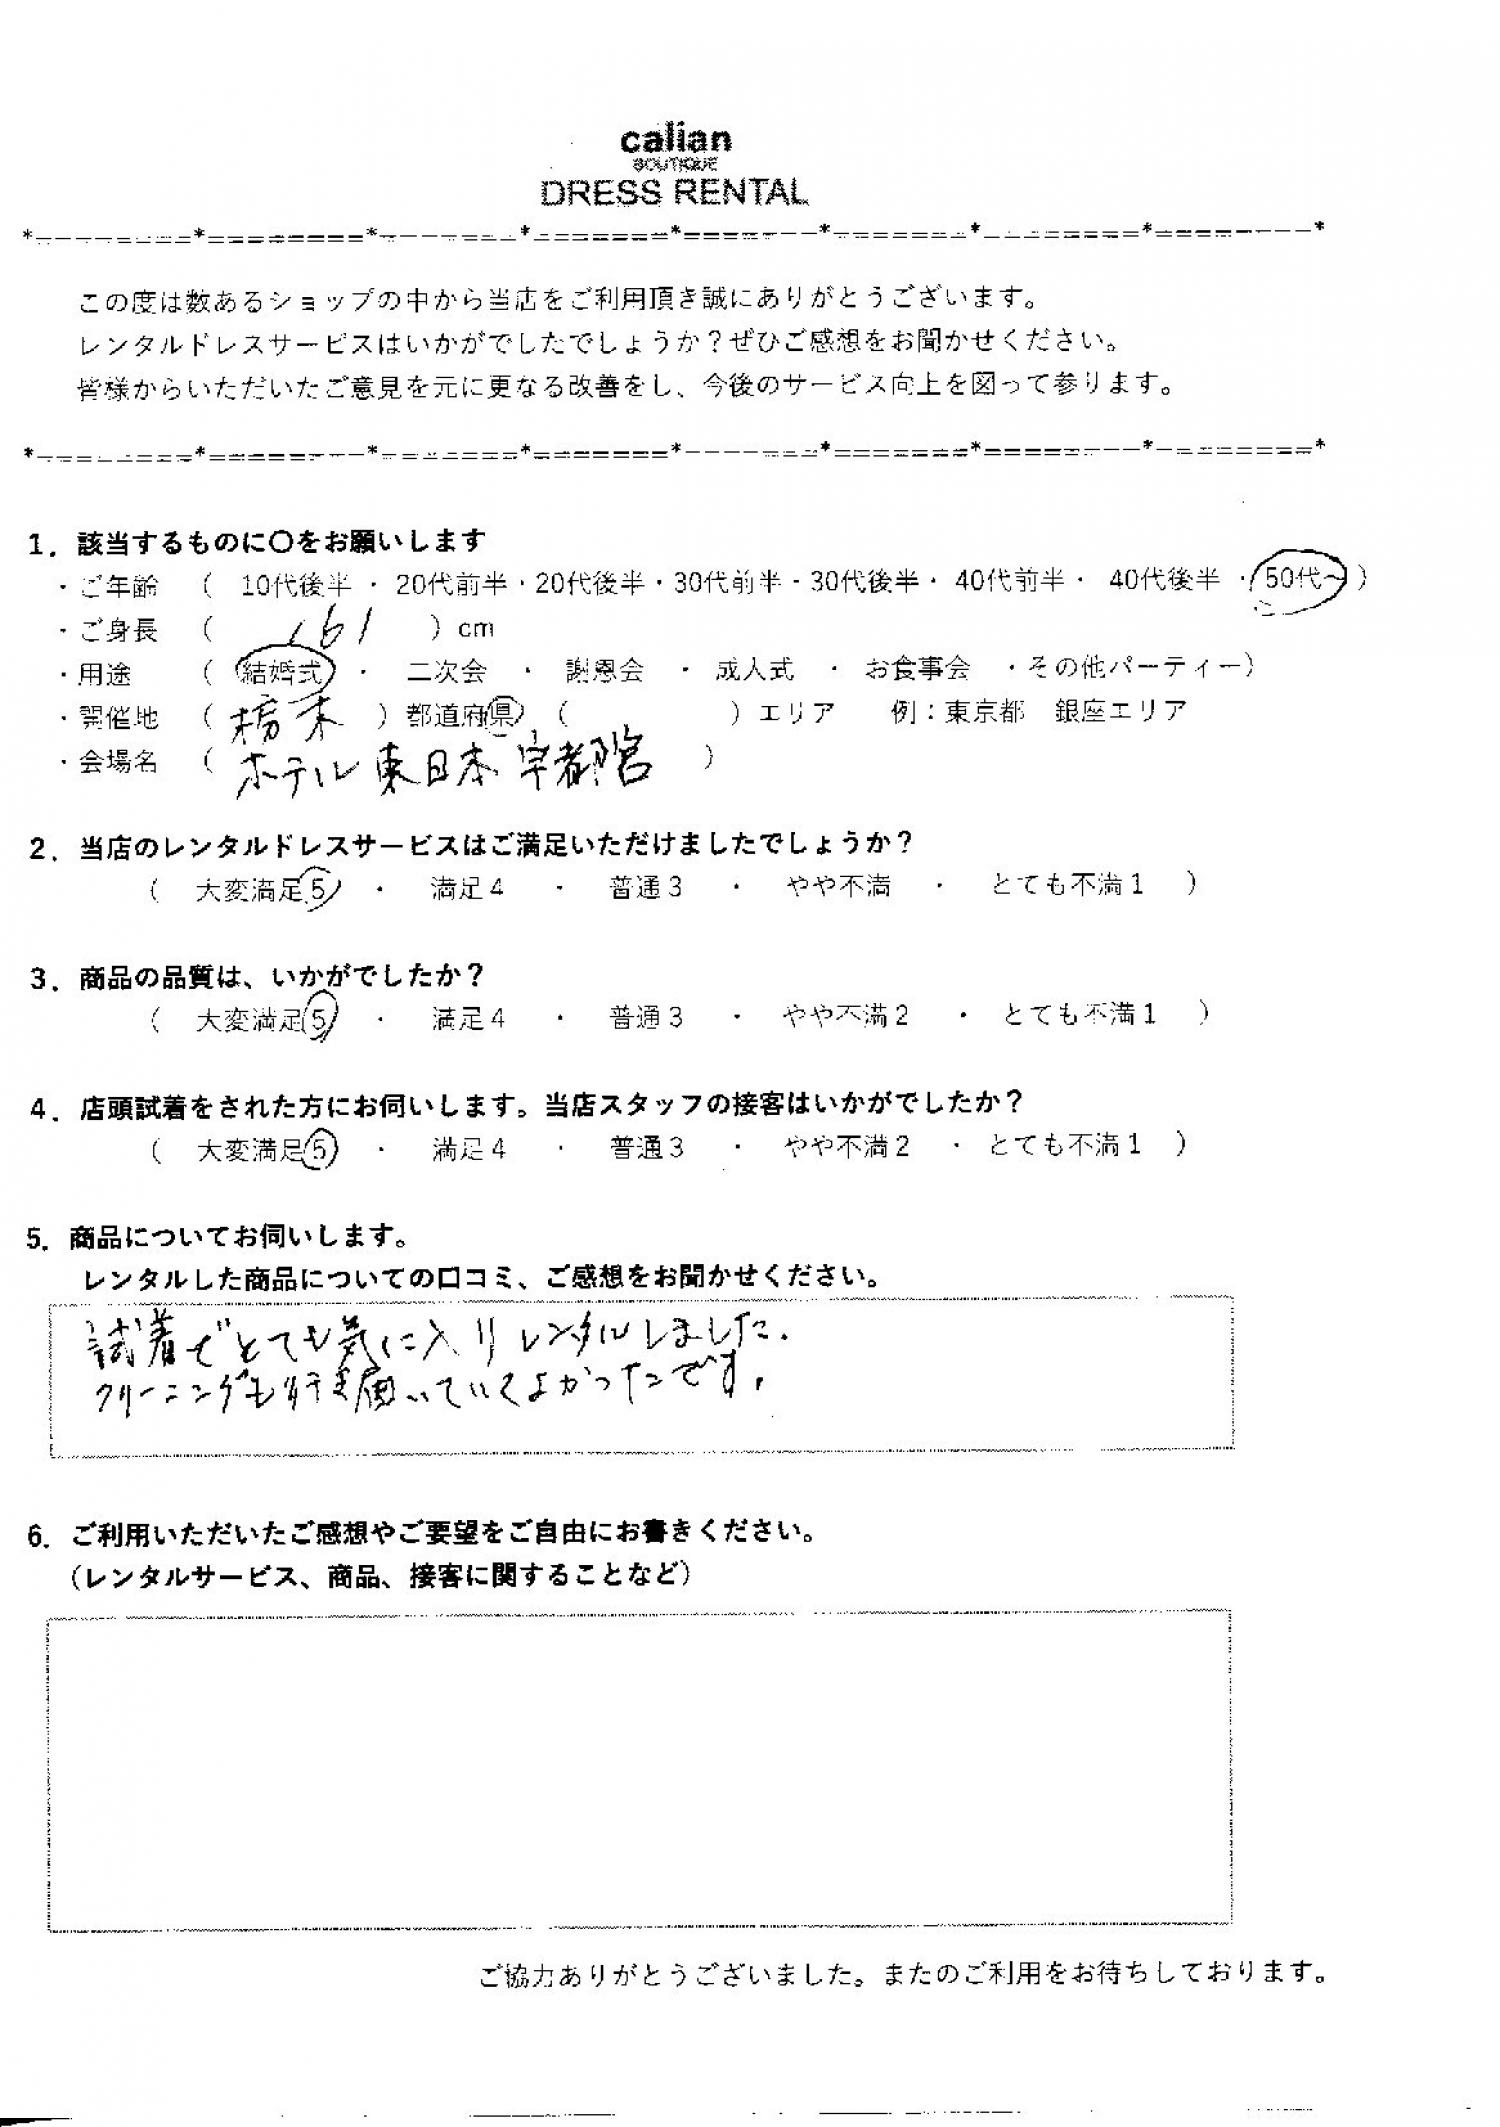 calian
BOUTIQUE
DRESS RENTAL
*--------*========*-------*=======*=======-*=======*--=======*========-*
この度は数あるショップの中から当店をご利用頂き誠にありがとうございます。
レンタルドレスサービスはいかがでしたでしょうか？ぜひご感想をお聞かせください。
皆様からいただいたご意見を元に更なる改善をし、今後のサービス向上を図って参ります。
*--------*========*-------*=======*-------*=======*========*-========*
1．該当するものに〇をお願いします
・ご年齢　（　10代後半 ・ 20代前半・20代後半・30代前半・30代後半・ 40代前半・ 40代後半 ・50代～）
・ご身長　（　161　）cm
・用途　（ 結婚式 ・ 二次会 ・ 謝恩会 ・ 成人式 ・ お食事会 ・その他パーティー）
・開催地　（ 栃木 ）都道府県 （　　　）エリア　例：東京都　銀座エリア
・会場名　（ ホテル東日本宇都宮 ）
2．当店のレンタルドレスサービスはご満足いただけましたでしょうか？
（　大変満足5 ・ 満足4 ・ 普通3 ・ やや不満 ・ とても不満1 ）
3．商品の品質は、いかがでしたか？
（　大変満足5 ・ 満足4 ・ 普通3 ・ やや不満2 ・ とても不満1 ）
4．店頭試着をされた方にお伺いします。当店スタッフの接客はいかがでしたか？
（　大変満足5 ・ 満足4 ・ 普通3 ・ やや不満2 ・ とても不満1 ）
5．商品についてお伺いします。
レンタルした商品についての口コミ、ご感想をお聞かせください。
試着でとても気に入りレンタルしました.
クリーニングも行き届いていてよかったです.
6．ご利用いただいたご感想やご要望をご自由にお書きください。
（レンタルサービス、商品、接客に関することなど）
ご協力ありがとうございました。またのご利用をお待ちしております。